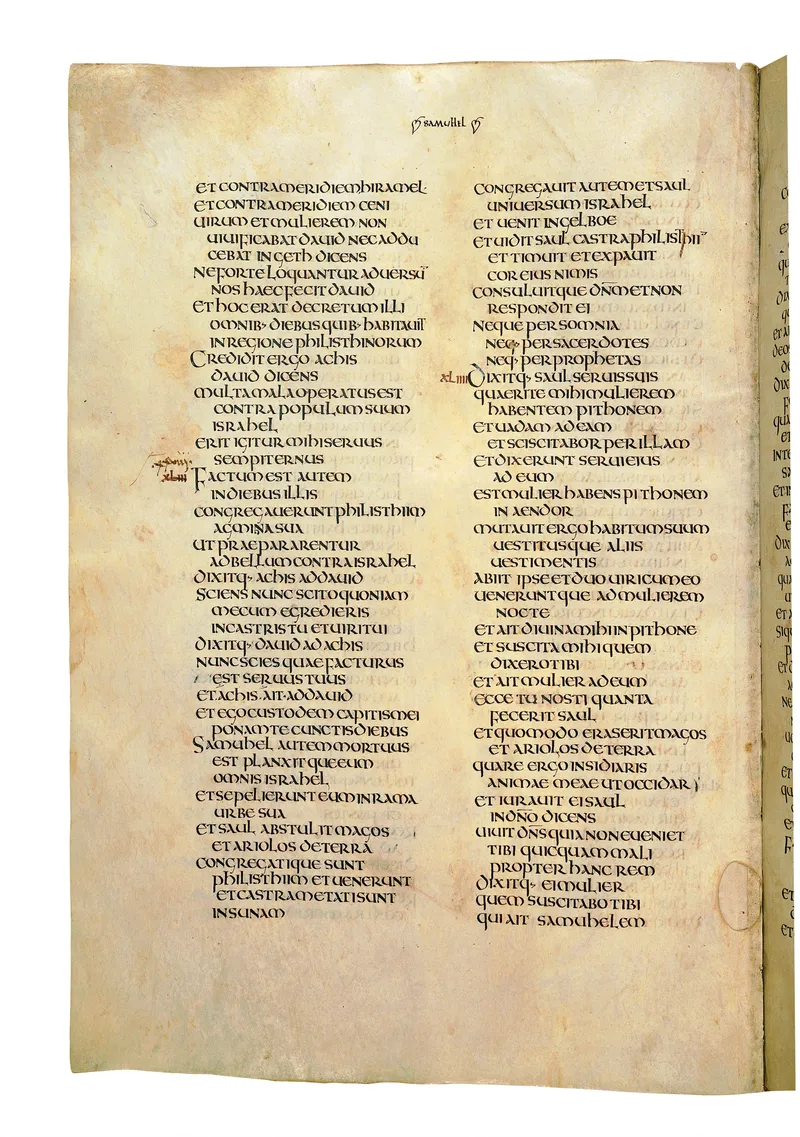 SAMUHEL
ET CONTRA MERIDIEM HIRAMEL
ET CONTRA MERIDIEM CENI
UIRUM ET MULIEREM NON
UIUIFICABAT DAUID NEC ADDU
CEBAT IN GETH DICENS
NE FORTE LOQUANTUR ADUERSU̅
NOS HAEC FECIT DAUID
ET HOC ERAT DECRETUM ILLI
OMNIB· DIEBUS QUIB· HABITAUIT
IN REGIONE PHILISTHINORUM
CREDIDIT ERGO ACHIS
DAUID DICENS
MULTA MALA OPERATUS EST
CONTRA POPULUM SUUM
ISRAHEL
ERIT IGITUR MIHI SERUUS
SEMPITERNUS
XLIII FACTUM EST AUTEM
IN DIEBUS ILLIS
CONGREGAUERUNT PHILISTHIIM
AGMINA SUA
UT PRAEPARARENTUR
AD BELLUM CONTRA ISRAHEL
DIXITQ· ACHIS AD DAUID
SCIENS NUNC SCITO QUONIAM
MECUM EGREDIERIS
IN CASTRIS TU ET UIRI TUI
DIXITQ· DAUID AD ACHIS
NUNC SCIES QUAE FACTURUS
EST SERUUS TUUS
ET ACHIS·AIT·AD DAUID
ET EGO CUSTODEM CAPITIS MEI
PONAM TE CUNCTIS DIEBUS
SAMUHEL AUTEM MORTUUS
EST PLANXITQUE EUM
OMNIS ISRAHEL
ET SEPELIERUNT EUM IN RAMA
URBE SUA
ET SAUL ABSTULIT MAGOS
ET ARIOLOS DE TERRA
CONGREGATIQUE SUNT
PHILISTHIIM ET UENERUNT
ET CASTRAMETATI SUNT
IN SUNAM
CONGREGAUIT AUTEM ET SAUL
UNIUERSUM ISRAHEL
ET UENIT IN GELBOE
ET UIDIT SAUL CASTRA PHILISTHII̅
ET TIMUIT ET EXPAUIT
COR EIUS NIMIS
CONSULUITQUE DN̅M ET NON
RESPONDIT EI
NEQUE PER SOMNIA
NEQ· PER SACERDOTES
NEQ· PER PROPHETAS
XLIIII DIXITQ· SAUL SERUIS SUIS
QUAERITE MIHI MULIEREM
HABENTEM PITHONEM
ET UADAM AD EAM
ET SCISCITABOR PER ILLAM
ET DIXERUNT SERUI EIUS
AD EUM
EST MULIER HABENS PITHONEM
IN AENDOR
MUTAUIT ERGO HABITUM SUUM
UESTITUSQUE ALIIS
UESTIMENTIS
ABIIT IPSE ET DUO UIRI CUM EO
UENERUNTQUE AD MULIEREM
NOCTE
ET AIT DIUINA MIHI IN PITHONE
ET SUSCITA MIHI QUEM
DIXERO TIBI
ET AIT MULIER AD EUM
ECCE TU NOSTI QUANTA
FECERIT SAUL
ET QUOMODO ERASERIT MAGOS
ET ARIOLOS DE TERRA
QUARE ERGO INSIDIARIS
ANIMAE MEAE UT OCCIDAR
ET IURAUIT EI SAUL
IN DN̅O DICENS
UIUIT DN̅S QUIA NON EUENIET
TIBI QUICQUAM MALI
PROPTER HANC REM
DIXITQ· EI MULIER
QUEM SUSCITABO TIBI
QUI AIT SAMUHELEM